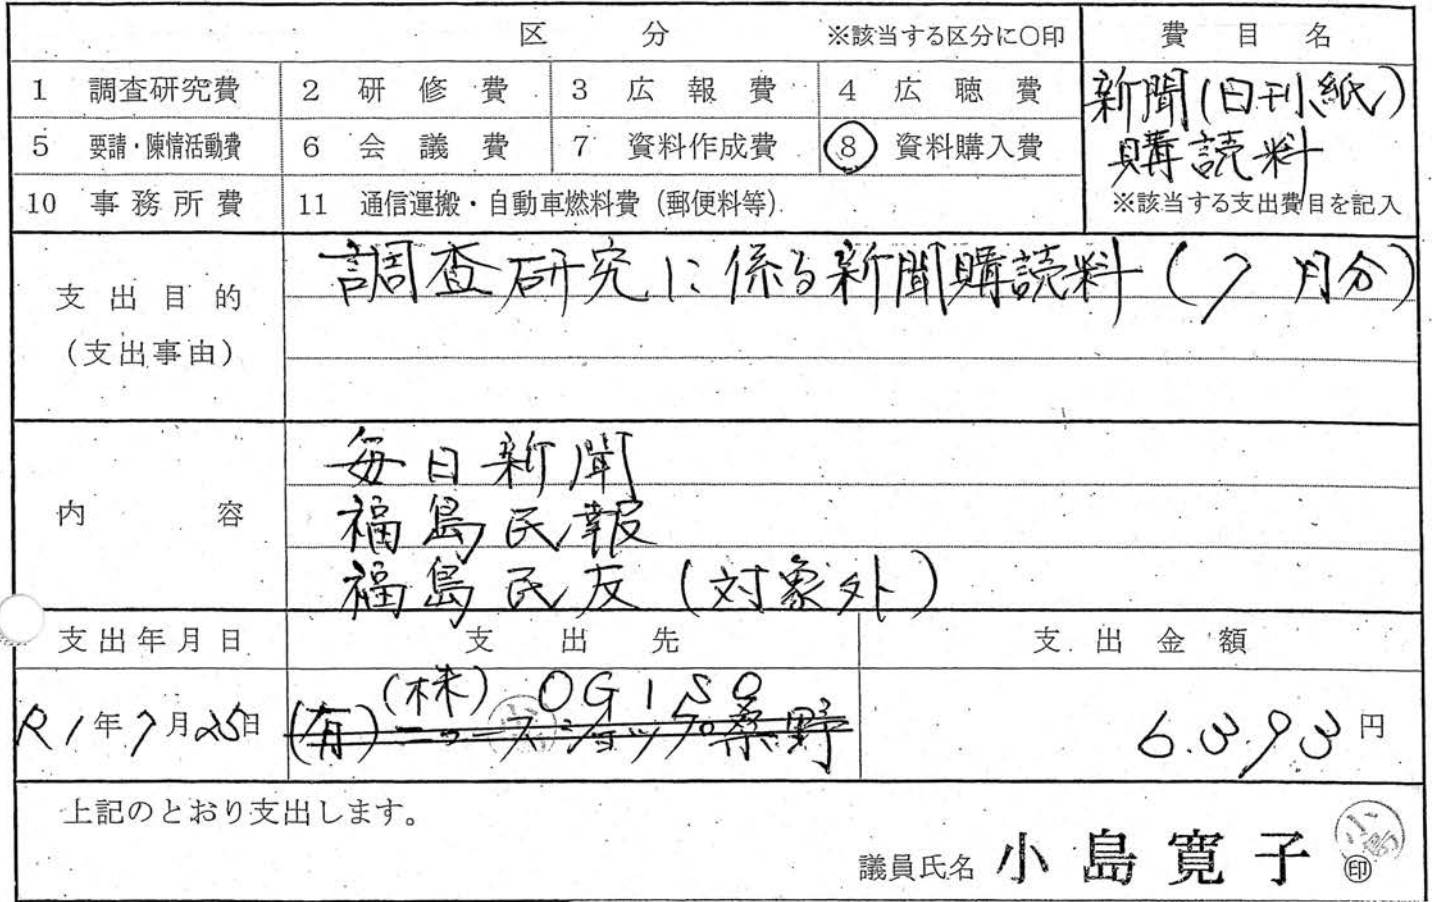 区 分 ※該当する区分に○印 費 目 名
1 調査研究費 2 研 修 費 3 広 報 費 4 広 聴 費 新聞(日刊紙)
5 要請・陳情活動費 6 会 議 費 7 資料作成費 8 資料購入費 購読料
10 事 務 所 費 11 通信運搬・自動車燃料費(郵便料等) ※該当する支出費目を記入
支 出 目 的
(支出事由)
調査研究に係る新聞購読料(7 月分)
内 容
毎日新聞
福島民報
福島民友(対象外)
支出年月日 支 出 先 支 出 金 額
(株) OGISO
R1年7月25日 (有)ニュースショップ桑野 6.393円
上記のとおり支出します。
議員氏名 小島寛子 印
小島